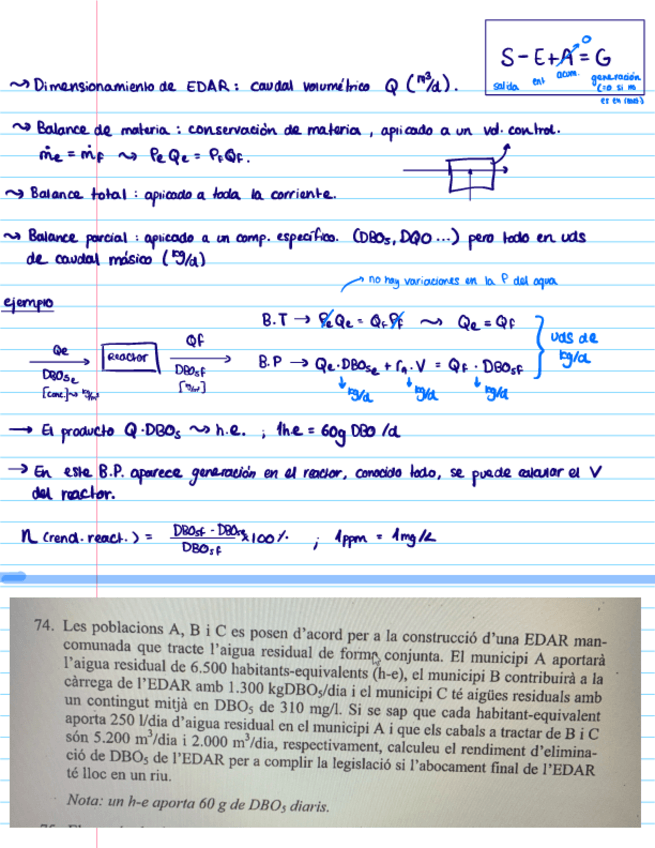 S - E + A = G
0
salida ent acum. generación
(=0 si m
es en total)
~> Dimensionamiento de EDAR: caudal volumétrico Q (m³/d).
~> Balance de materia: conservación de materia, aplicado a un vol. control.
ṁe = ṁF ~> ρe Qe = ρF QF.
~> Balance total: aplicado a toda la corriente.
~> Balance parcial: aplicado a un comp. específico. (DBO5, DQO...) pero todo en uds
de caudal másico (kg/d)
no hay variaciones en la ρ del agua
ejemplo
B.T → ρe Qe = QF ρF ~> Qe = QF
uds de
kg/d
Qe Reactor QF
DBO5e DBO5F
B.P → Qe · DBO5e + rA · V = QF · DBO5F
kg/d kg/d kg/d
→ El producto Q·DBO5 ~> h.e. ; 1he = 60g DBO/d
→ En este B.P. aparece generación en el reactor, conocido todo, se puede calcular el V
del reactor.
η (rend. react.) = (DBO5F - DBO5e)/DBO5F x100% ; 1ppm = 1mg/L
74. Les poblacions A, B i C es posen d'acord per a la construcció d'una EDAR man-
comunada que tracte l'aigua residual de forma conjunta. El municipi A aportarà
l'aigua residual de 6.500 habitants-equivalents (h-e), el municipi B contribuirà a la
càrrega de l'EDAR amb 1.300 kgDBO5/dia i el municipi C té aigües residuals amb
un contingut mitjà en DBO5 de 310 mg/l. Si se sap que cada habitant-equivalent
aporta 250 l/dia d'aigua residual en el municipi A i que els cabals a tractar de B i C
són 5.200 m³/dia i 2.000 m³/dia, respectivament, calculeu el rendiment d'elimina-
ció de DBO5 de l'EDAR per a complir la legislació si l'abocament final de l'EDAR
té lloc en un riu.
Nota: un h-e aporta 60 g de DBO5 diaris.